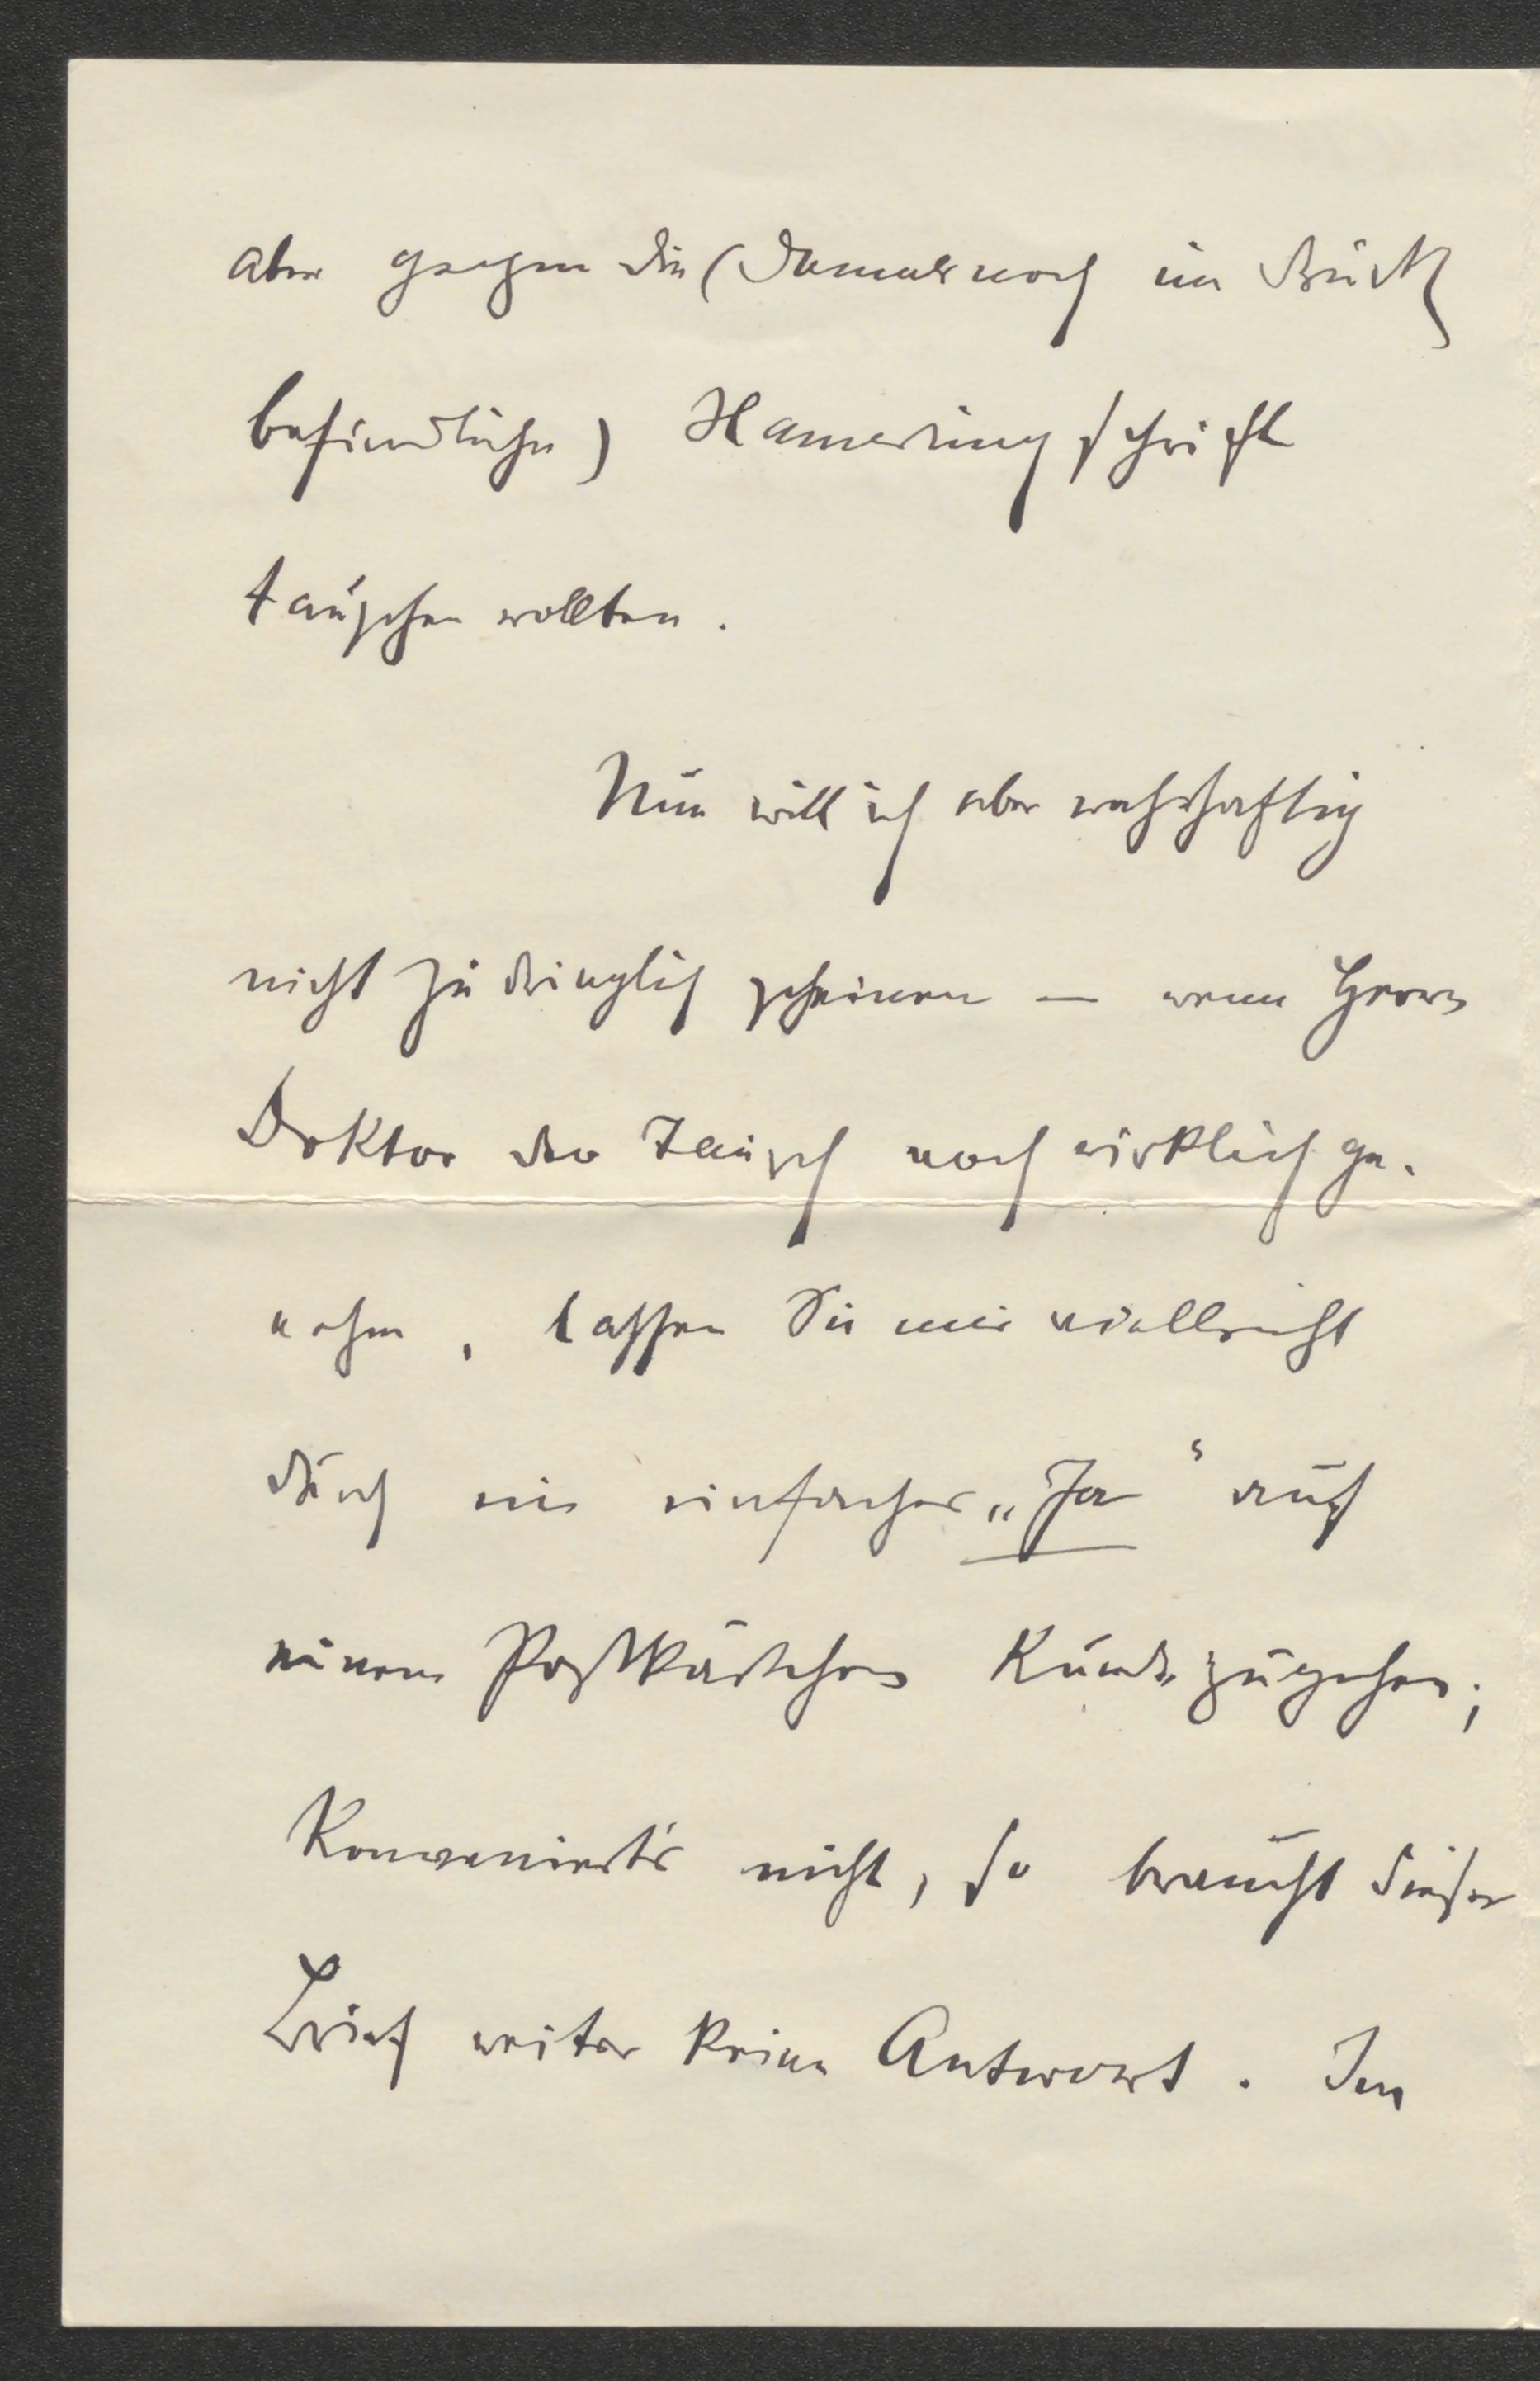 aber gegen die (damals noch im Druck
befindliche) Hamerlingschrift
tauschen wollten.
Nun will ich aber wahrhaftig
nicht zudringlich scheinen — wenn Herrn
Doktor der Tausch noch wirklich ge-
nehm, lassen Sie mir vielleicht
durch ein einfaches „Ja“ auf
einem Postkärtchen Kunde zugehen;
Konveniert's nicht, so braucht dieser
Brief weiter keine Antwort. Im